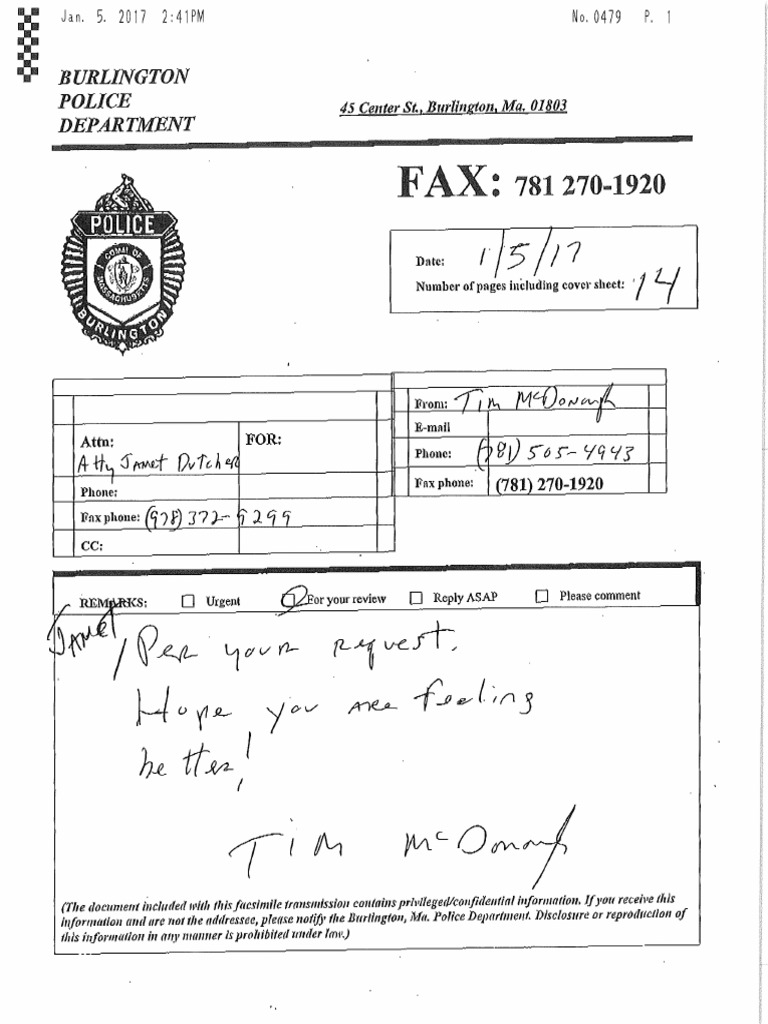 Jan. 5. 2017 2:41PM No. 0479 P. 1
BURLINGTON
POLICE
DEPARTMENT
45 Center St., Burlington, Ma. 01803
FAX: 781 270-1920
POLICE
COMM OF
MASSACHUSETTS
BURLINGTON
Date: 1/5/17
Number of pages including cover sheet: 14
From: Tim McDonough
E-mail
Phone: (781) 505-4943
Fax phone: (781) 270-1920
Attn: FOR:
Atty Janet Dutcher
Phone:
Fax phone: (978) 372-9299
CC:
REMARKS: Urgent For your review Reply ASAP Please comment
Janet/
Per your request.
Hope you are feeling
better!
Tim McDonough
(The document included with this facsimile transmission contains privileged/confidential information. If you receive this
information and are not the addressee, please notify the Burlington, Ma. Police Department. Disclosure or reproduction of
this information in any manner is prohibited under law.)